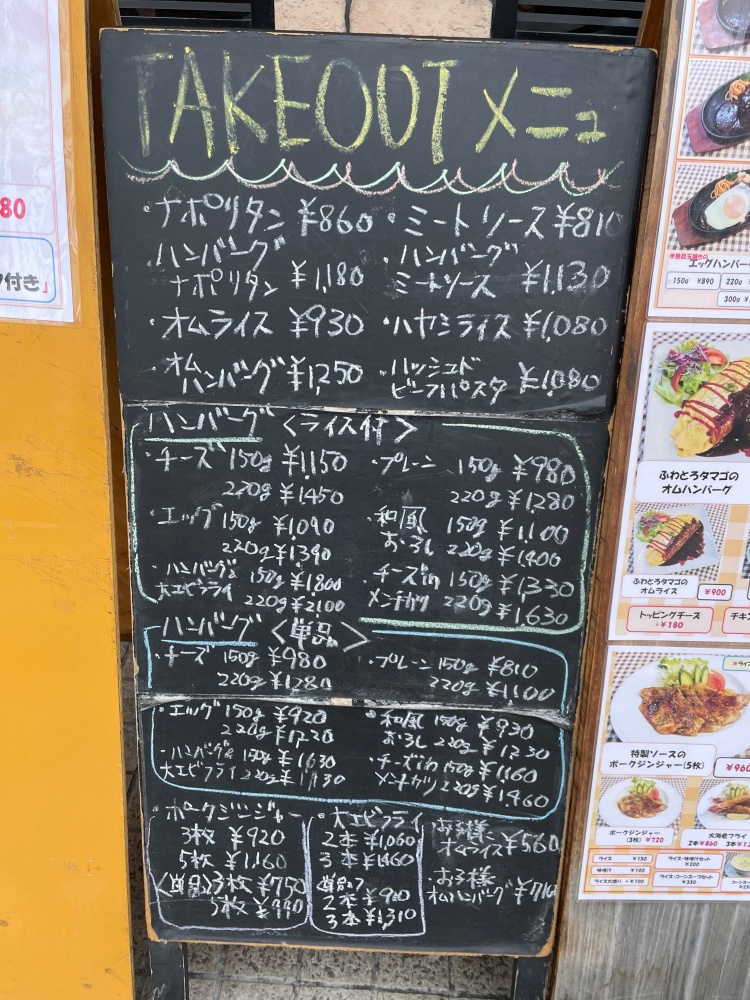 TAKEOUT メニュ
・ナポリタン ¥860 ・ミートソース ¥810
・ハンバーグ ナポリタン ¥1,180
・ハンバーグ ミートソース ¥1,130
・オムライス ¥930 ・ハヤシライス ¥1,080
・オムハンバーグ ¥1,250
・ハッシュド ビーフパスタ ¥1,080
ハンバーグ 〈ライス付〉
・チーズ 150g ¥1,150
220g ¥1450
・エッグ 150g ¥1,090
220g ¥1,390
・ハンバーグ& 150g ¥1,800
大エビフライ 220g ¥2,100
・プレーン 150g ¥980
220g ¥1280
・和風 150g ¥1,100
おろし 220g ¥1,400
・チーズin 150g ¥1,330
メンチカツ 220g ¥1,630
ハンバーグ 〈単品〉
・チーズ 150g ¥980
220g ¥1280
・プレーン 150g ¥810
220g ¥1,100
・エッグ 150g ¥920
220g ¥1,220
・ハンバーグ& 150g ¥1,630
大エビフライ 220g
・和風 150g ¥930
おろし 220g ¥1230
・チーズin 150g ¥1,160
メンチカツ 220g ¥1,460
・ポークジンジャー
3枚 ¥920
5枚 ¥1,160
〈単品〉3枚 ¥750
5枚
・大エビフライ
2本 ¥1,060
3本
単品
2本
3本 ¥1,310
お子様 オムライス ¥560
お子様
オムハンバーグ
80
付き」
半熟目玉焼きの
エッグハンバー
150g ¥890 220g
300g
ふわとろタマゴの
オムハンバーグ
ふわとろタマゴの
オムライス ¥900
トッピングチーズ
+¥180
チキン
特製ソースの
ポークジンジャー(5枚) ¥960
ポークジンジャー
(3枚) ¥720
大海老フライ
2本¥860
ライス ¥150
味噌汁 ¥100
ライス大盛り +¥100
ライス・味噌汁セット
¥200
ライス・コーンスープセット
¥330